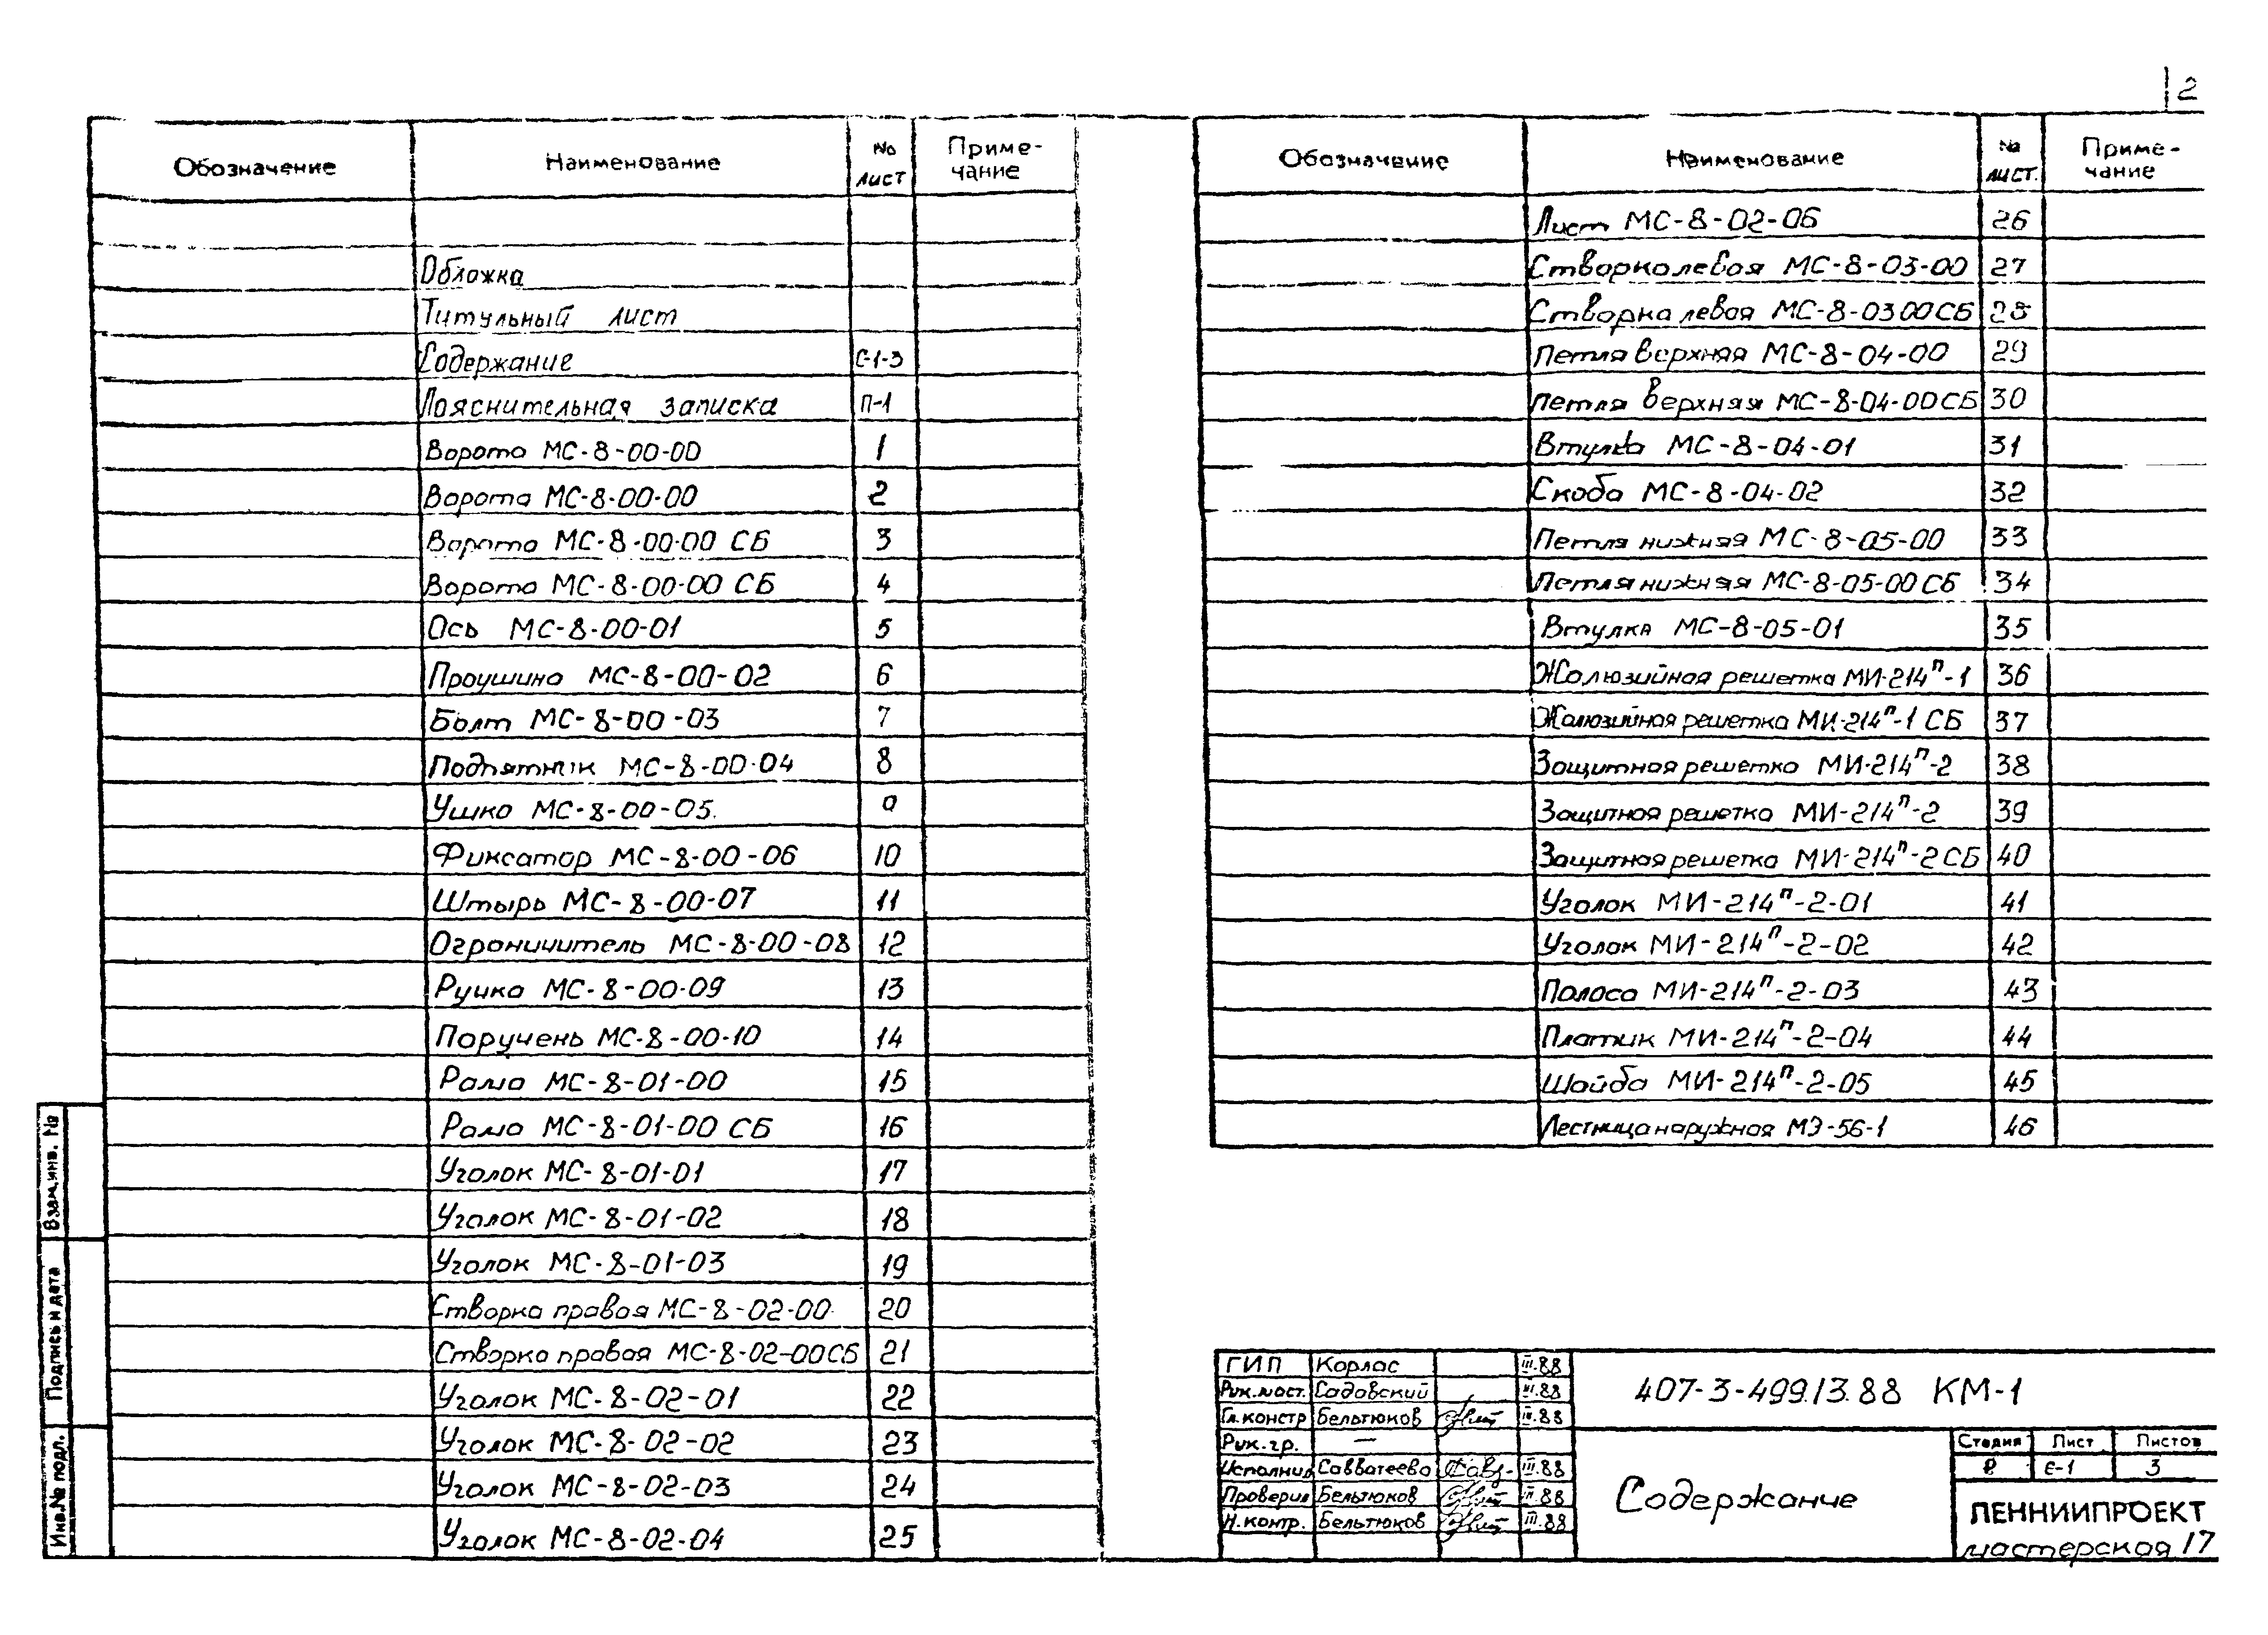 2
Обозначение Наименование № лист Приме-чание
Обложка
Титульный лист
Содержание С-1-3
Пояснительная записка П-1
Ворота МС-8-00-00 1
Ворота МС-8-00-00 2
Ворота МС-8-00-00 СБ 3
Ворота МС-8-00-00 СБ 4
Ось МС-8-00-01 5
Проушина МС-8-00-02 6
Болт МС-8-00-03 7
Подпятник МС-8-00-04 8
Ушко МС-8-00-05. 9
Фиксатор МС-8-00-06 10
Штырь МС-8-00-07 11
Ограничитель МС-8-00-08 12
Ручка МС-8-00-09 13
Поручень МС-8-00-10 14
Рама МС-8-01-00 15
Рама МС-8-01-00 СБ 16
Уголок МС-8-01-01 17
Уголок МС-8-01-02 18
Уголок МС-8-01-03 19
Створка правая МС-8-02-00 20
Створка правая МС-8-02-00СБ 21
Уголок МС-8-02-01 22
Уголок МС-8-02-02 23
Уголок МС-8-02-03 24
Уголок МС-8-02-04 25
Обозначение Наименование № лист. Приме-чание
Лист МС-8-02-06 26
Створка левая МС-8-03-00 27
Створка левая МС-8-0300СБ 28
Петля верхняя МС-8-04-00 29
Петля верхняя МС-8-04-00СБ 30
Втулка МС-8-04-01 31
Скоба МС-8-04-02 32
Петля нижняя МС-8-05-00 33
Петля нижняя МС-8-05-00 СБ 34
Втулка МС-8-05-01 35
Жалюзийная решетка МИ-214П-1 36
Жалюзийная решетка МИ-214П-1 СБ 37
Защитная решетка МИ-214П-2 38
Защитная решетка МИ-214П-2 39
Защитная решетка МИ-214П-2СБ 40
Уголок МИ-214П-2-01 41
Уголок МИ-214П-2-02 42
Полоса МИ-214П-2-03 43
Платик МИ-214П-2-04 44
Шайба МИ-214П-2-05 45
Лестница наружная МЭ-56-1 46
Взам.инв. №
Подпись и дата
Инв.№ подл.
ГИП Корлас III.88
Рук.маст. Садовский III.88
Гл.констр Бельтюков III.88
Рук.гр. —
Исполнил Савватеева III.88
Проверил Бельтюков III.88
Н.контр. Бельтюков III.88
407-3-499.13.88 КМ-1
Содержание
Стадия Лист Листов
Р С-1 3
ЛЕННИИПРОЕКТ
мастерская 17